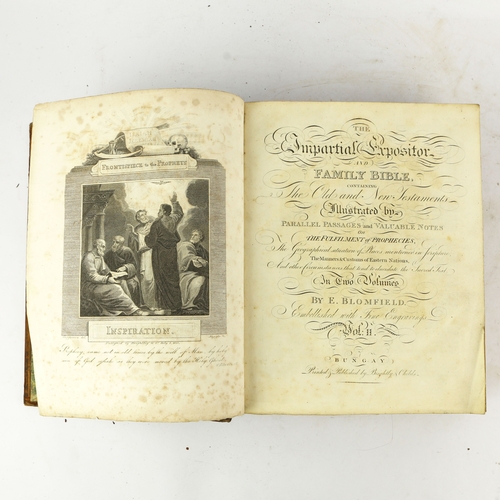 FRONTISPIECE to the PROPHETS
INSPIRATION.
Prophecy came not in old time by the will of Man but holy
men of God spake as they were moved by the Holy Ghost
THE
Impartial Expositor
AND
FAMILY BIBLE,
CONTAINING
The Old and New Testaments
Illustrated by
PARALLEL PASSAGES and VALUABLE NOTES
ON
THE FULFILMENT of PROPHECIES,
The Geographical situation of Places mentioned in Scripture
The Manners & Customs of Eastern Nations,
And other circumstances that tend to elucidate the Sacred Text.
In Two Volumes
BY E. BLOMFIELD.
Embellished with Fine Engravings.
Vol: II.
BUNGAY
Printed & Published by Brightly & Childs.